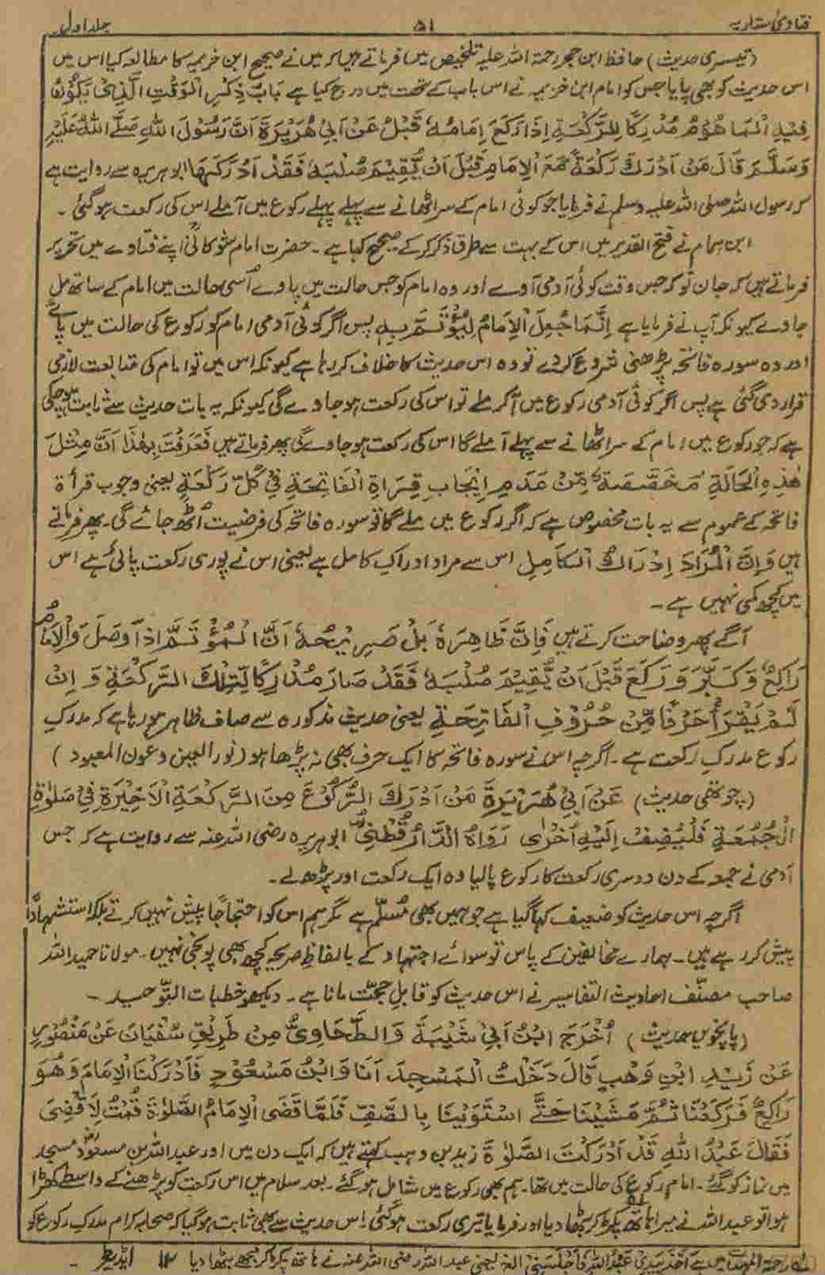 فتاویٰ ستاریہ ۵۱ جلد اول
(تیسری حدیث) حافظ ابن حجر رحمۃ اللہ علیہ تلخیص میں فرماتے ہیں کہ میں نے صحیح ابن خزیمہ کا مطالعہ کیا اس میں
اس حدیث کو بھی پایا جس کو امام ابن خزیمہ نے اس باب کے تحت میں درج کیا ہے بَابُ ذِكْرِ الْوَقْتِ الَّذِیْ یَكُوْنُ
فِیْهِ الْمَامُوْمُ مُدْرِكًا لِلرَّكْعَةِ اِذَا رَكَعَ اِمَامُهٗ قَبْلُ عَنْ اَبِیْ هُرَیْرَةَ اَنَّ رَسُوْلَ اللهِ صَلَّے اللهُ عَلَیْهِ
وَسَلَّمَ قَالَ مَنْ اَدْرَكَ رَكْعَةً مَعَ الْاِمَامِ قَبْلَ اَنْ یُّقِیْمَ صُلْبَهٗ فَقَدْ اَدْرَكَهَا ابو ہریرہ سے روایت ہے
کہ رسول اللہ صلی اللہ علیہ وسلم نے فرمایا جو کوئی امام کے سر اٹھانے سے پہلے پہلے رکوع میں آملے اس کی رکعت ہو گئی۔
ابن ہمام نے فتح القدیر میں اس کے بہت سے طرق ذکر کر کے صحیح کہا ہے۔ حضرت امام شوکانیؒ اپنے فتاوے میں تحریر
فرماتے ہیں کہ جان تو کہ جس وقت کوئی آدمی آوے اور وہ امام کو جس حالت میں پاوے اُسی حالت میں امام کے ساتھ مل
جاوے کیونکہ آپ نے فرمایا ہے اِنَّمَا جُعِلَ الْاِمَامُ لِیُؤْتَمَّ بِهٖ پس اگر کوئی آدمی امام کو رکوع کی حالت میں پائے
اور وہ سورہ فاتحہ پڑھنی شروع کر دے تو وہ اس حدیث کا خلاف کر رہا ہے کیونکہ اس میں تو امام کی متابعت لازمی
قرار دی گئی ہے پس اگر کوئی آدمی رکوع میں آکر ملے تو اس کی رکعت ہو جاوے گی کیونکہ یہ بات حدیث سے ثابت ہو چکی
ہے کہ جو رکوع میں امام کے سر اٹھانے سے پہلے آملے گا اس کی رکعت ہو جاوے گی پھر فرماتے ہیں فَعَرَفْتَ بِهٰذَا اَنَّ مِثْلَ
هٰذِهِ الْحَالَةِ مُخَصَّصَةٌ مِّنْ عَدَمِ اِیْجَابِ قِرَاةِ الْفَاتِحَةِ فِیْ كُلِّ رَكْعَةٍ یعنی وجوب قرأۃ
فاتحہ کے عموم سے یہ بات مخصوص ہے کہ اگر رکوع میں ملے گا تو سورہ فاتحہ کی فرضیت اُٹھ جائے گی۔ پھر فرماتے
ہیں وَاِنَّ الْمُرَادَ اِدْرَاكُ الْكَامِلِ اس سے مراد ادراک کامل ہے یعنی اس نے پوری رکعت پالی ہے اس
میں کچھ کمی نہیں ہے۔
آگے پھر وضاحت کرتے ہیں فَاِنَّ ظَاهِرَهٗ بَلْ صَرِیْحُهٗ اَنَّ الْمُؤْتَمَّ اِذَا وَصَلَ وَالْاِمَامُ
رَاكِعٌ وَكَبَّرَ وَرَكَعَ قَبْلَ اَنْ یُّقِیْمَ صُلْبَهٗ فَقَدْ صَارَ مُدْرِكًا لِتِلْكَ الرَّكْعَةِ وَاِنْ
لَمْ یَقْرَأْ حَرْفًا مِّنْ حُرُوْفِ الْفَاتِحَةِ یعنی حدیث مذکورہ سے صاف ظاہر ہو رہا ہے کہ مدرکِ
رکوع مدرکِ رکعت ہے۔ اگرچہ اس نے سورہ فاتحہ کا ایک حرف بھی نہ پڑھا ہو (نور العین و عون المعبود)
(چوتھی حدیث) عَنْ اَبِیْ هُرَیْرَةَ مَنْ اَدْرَكَ الرُّكُوْعَ مِنَ الرَّكْعَةِ الْاَخِیْرَةِ فِیْ صَلٰوةِ
الْجُمُعَةِ فَلْیُضِفْ اِلَیْهِ اُخْرٰی رَوَاهُ الدَّارُ قُطْنِیُّ ابو ہریرہ رضی اللہ عنہ سے روایت ہے کہ جس
آدمی نے جمعہ کے دن دوسری رکعت کا رکوع پالیا وہ ایک رکعت اور پڑھ لے۔
اگرچہ اس حدیث کو ضعیف کہا گیا ہے جو ہمیں بھی مُسلّم ہے مگر ہم اس کو احتجاجاً پیش نہیں کرتے بلکہ استشہاداً
پیش کر رہے ہیں۔ ہمارے مخالفین کے پاس تو سوائے اجتہاد کے بالفاظِ صریحہ کچھ بھی پونجی نہیں۔ مولانا حمید اللہ
صاحب مصنّف احادیث التفاسیر نے اس حدیث کو قابلِ حجّت مانا ہے۔ دیکھو خطبات التّوحید۔
(پانچویں حدیث) اَخْرَجَ ابْنُ اَبِیْ شَیْبَةَ وَالطَّحَاوِیُّ مِنْ طَرِیْقِ سُفْیَانَ عَنْ مَنْصُوْرٍ
عَنْ زَیْدِ ابْنِ وَهْبٍ قَالَ دَخَلْتُ الْمَسْجِدَ اَنَا وَابْنُ مَسْعُوْدٍ فَاَدْرَكْنَا الْاِمَامَ وَهُوَ
رَاكِعٌ فَرَكَعْنَا ثُمَّ مَشَیْنَا حَتّٰے اسْتَوَیْنَا بِالصَّفِّ فَلَمَّا قَضَی الْاِمَامُ الصَّلٰوةَ قُمْتُ لِاَقْضِیَ
فَقَالَ عَبْدُ اللهِ قَدْ اَدْرَكْتَ الصَّلٰوةَ زید بن وہب کہتے ہیں کہ ایک دن میں اور عبداللہ بن مسعودؓ مسجد
میں نماز کو گئے۔ امام رکوع کی حالت میں تھا۔ ہم بھی رکوع میں شامل ہو گئے۔ بعد سلام میں اس رکعت کو پڑھنے کے واسطے کھڑا
ہوا تو عبداللہ نے میرا ہاتھ پکڑ کر بٹھا دیا اور فرمایا تیری رکعت ہو گئی! اس حدیث سے بھی ثابت ہو گیا کہ صحابہ کرام مدرک رکوع کو
میں ہے اَخَذَ بِیَدِیْ عَبْدُ اللهِ فَاَجْلَسَنِیْ الخ یعنی عبداللہ رضی اللہ عنہ نے ہاتھ پکڑ کر مجھے بٹھا دیا ۱۲ ایڈیٹر۔